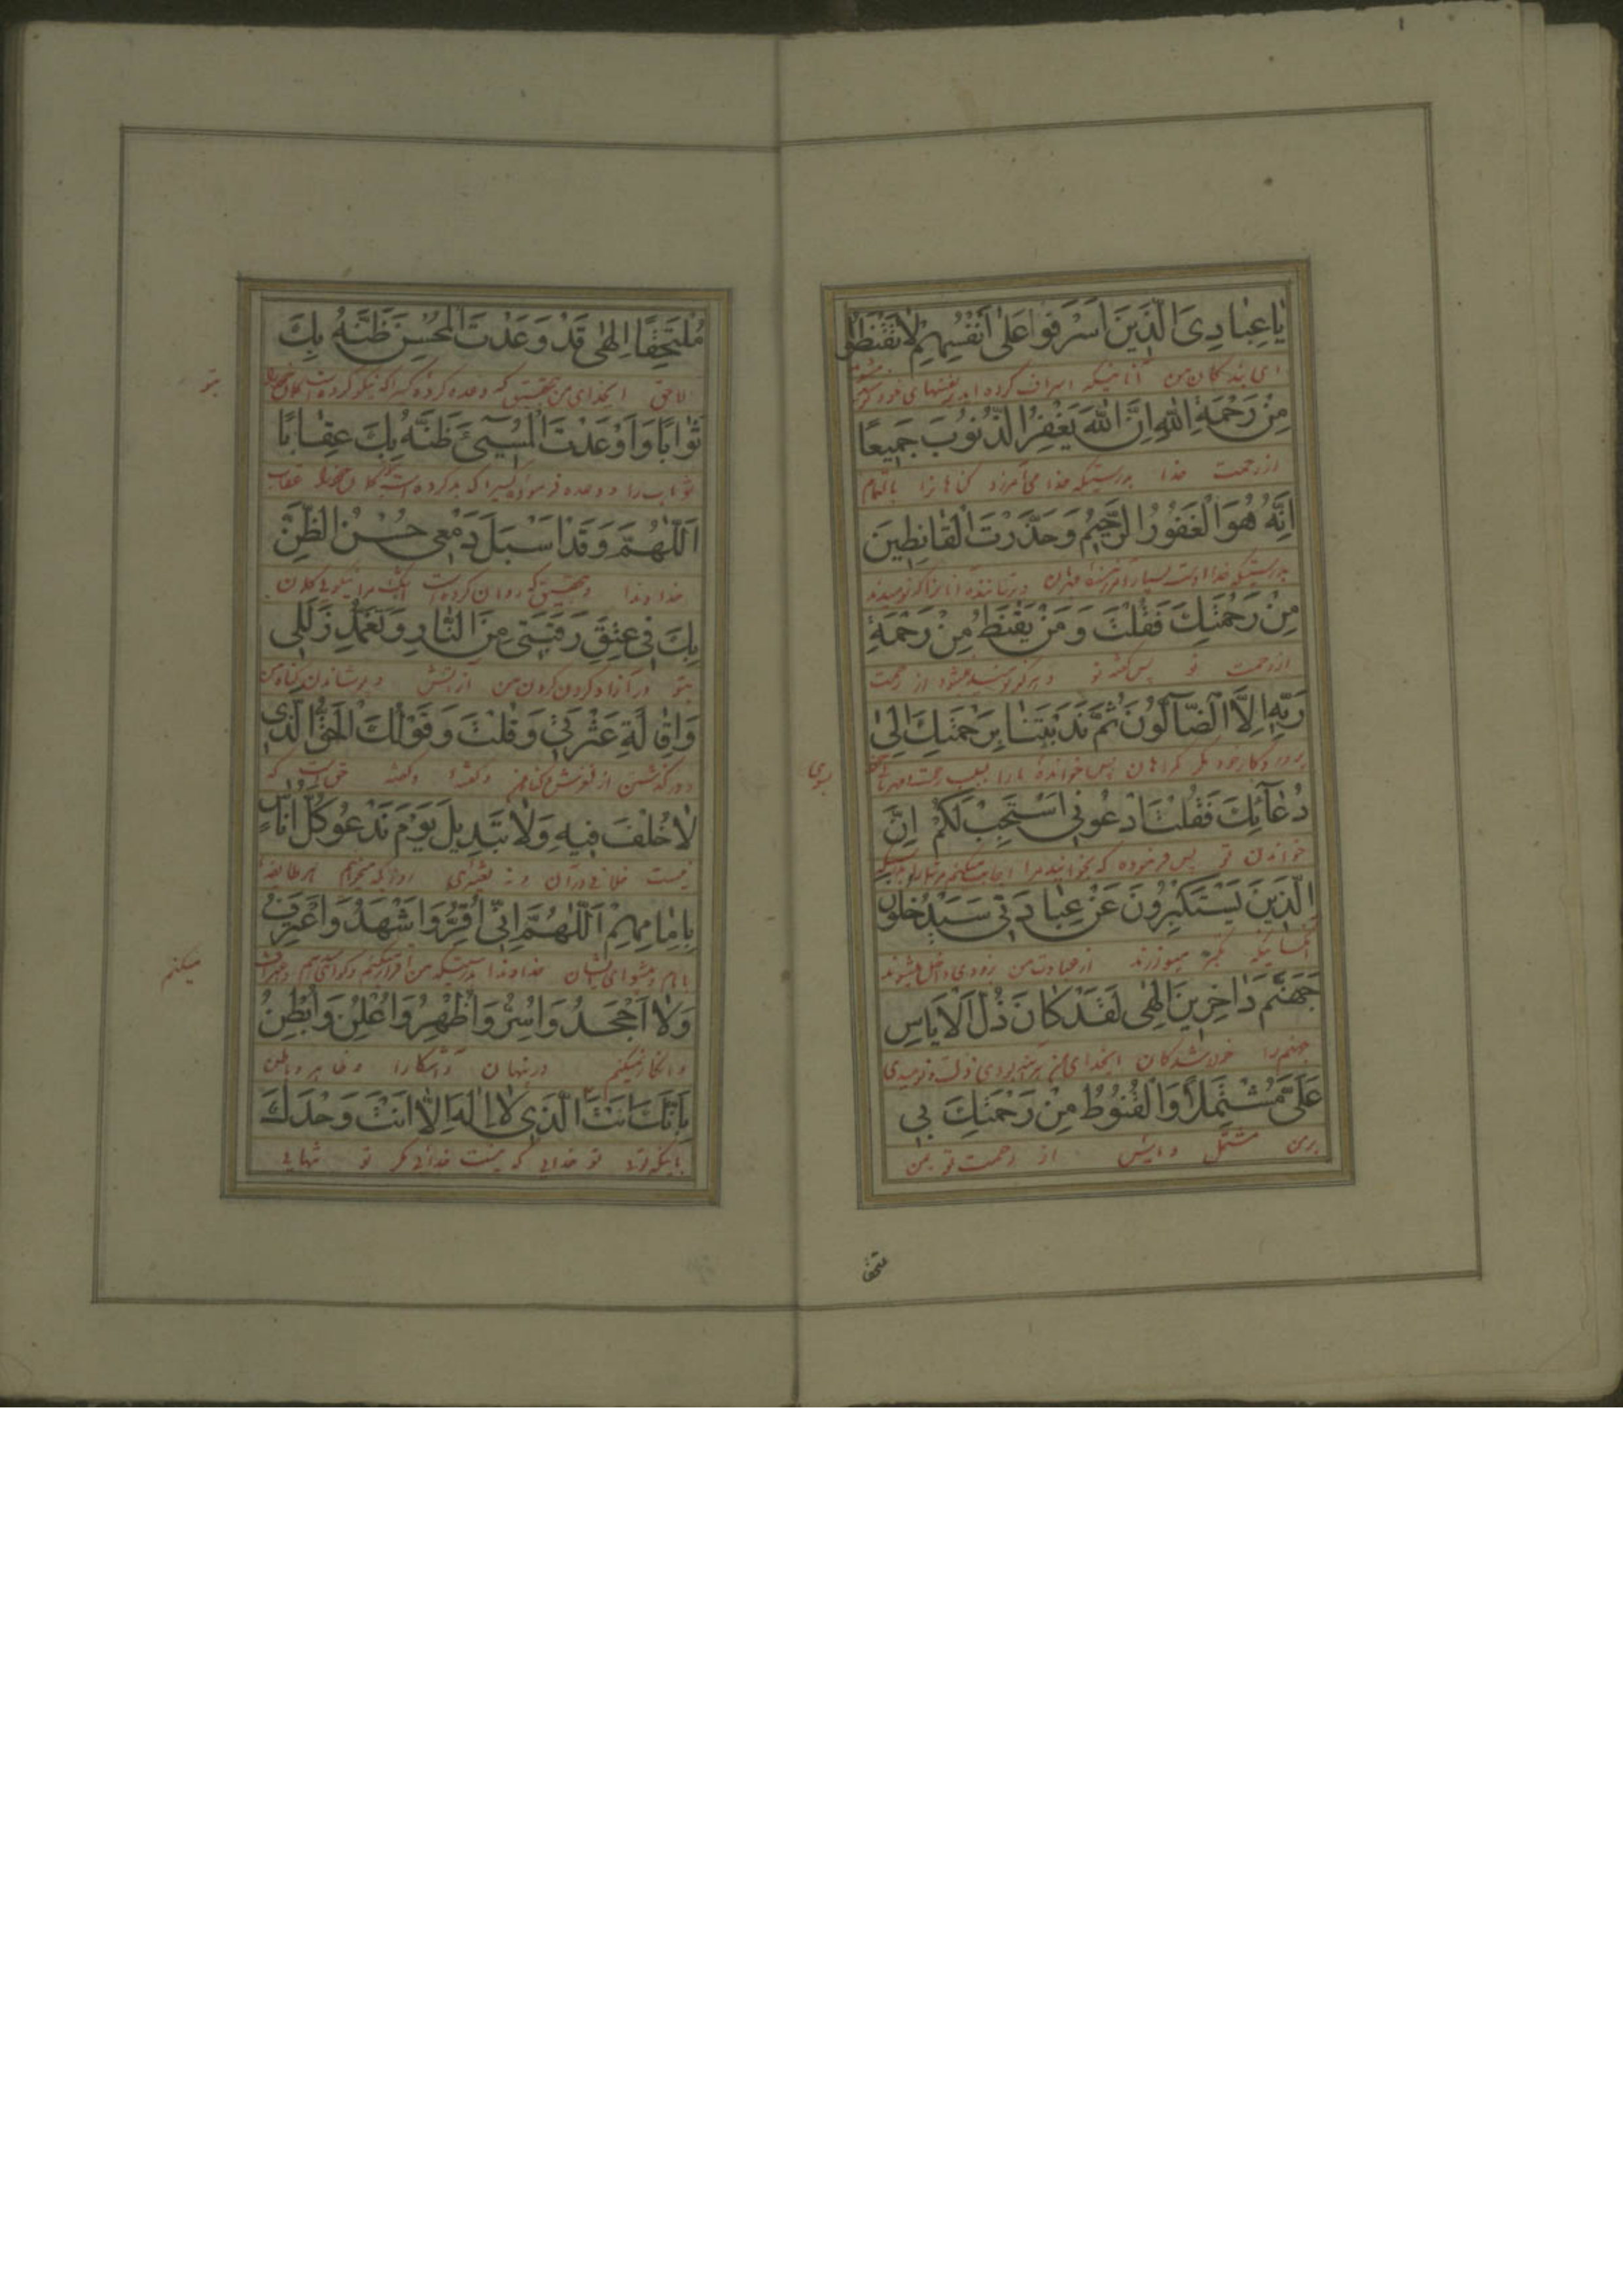 يٰا عِبٰادِىَ الَّذينَ اَسْرَفُوا عَلىٰ اَنْفُسِهِمْ لٰا تَقْنَطُوا
ای بندکان من آنانیکه اسراف کرده اید بر نفسهای خود
مِنْ رَحْمَةِ اللّٰهِ اِنَّ اللّٰهَ يَغْفِرُ الذُّنُوبَ جَميعًا
از رحمت خدا بدرستیکه خدا می آمرزد کناهانرا بالتمام
اِنَّهُ هُوَ الْغَفُورُ الرَّحيمُ وَحَذَّرْتَ الْقٰانِطينَ
بدرستیکه خدا اوست بسیار آمرزنده مهربان و ترساننده آنانرا که نومیدند
مِنْ رَحْمَتِكَ فَقُلْتَ وَمَنْ يَقْنَطُ مِنْ رَحْمَةِ
از رحمت تو پس کفته تو و هرکه نومید میشود از رحمت
رَبِّهِ اِلَّا الضّٰآلُّونَ ثُمَّ نَدَبْتَنٰا بِرَحْمَتِكَ اِلىٰ
پروردکار خود مکر کمراهان پس خوانده ما را بسبب رحمت
بسوی
دُعٰآئِكَ فَقُلْتَ ادْعُونى اَسْتَجِبْ لَكُمْ اِنَّ
خواندن تو پس فرموده که بخوانید مرا اجابت میکنم
الَّذينَ يَسْتَكْبِرُونَ عَنْ عِبٰادَتى سَيَدْخُلُونَ
آنکسانیکه تکبر میورزند از عبادت من بزودی داخل میشوند
جَهَنَّمَ دٰاخِرينَ اِلٰهى لَقَدْ كٰانَ ذُلُّ الْاِيٰاسِ
جهنم را خوارشدکان ایخدای من هر آینه بودی ذلت نومیدی
عَلَىَّ مُشْتَمِلًا وَالْقُنُوطُ مِنْ رَحْمَتِكَ بى
برمن مشتمل و از رحمت تو بمن
ملتحفا
مُلْتَحِفًا اِلٰهى قَدْ وَعَدْتَ الْمُحْسِنَ ظَنَّهُ بِكَ
لاحق ایخدای من بتحقیق که وعده کرده کسیرا که نیکو کرده است
بتو
ثَوٰابًا وَاَوْعَدْتَ الْمُسيئَ ظَنَّهُ بِكَ عِقٰابًا
ثواب را و وعده فرموده کسیرا که بد کرده است عقاب
اَللّٰهُمَّ وَقَدْ اَسْبَلَ دَمْعى حُسْنُ الظَّنِّ
خداوندا و بتحقیق که روان کرده است اشک مرا نیکوئی کمان
بِكَ فى عِتْقِ رَقَبَتى مِنَ النّٰارِ وَتَغَمُّدِ زَلَلى
بتو در آزاد کردن کردن من از آتش و پوشاندن کناه من
وَاِقٰالَةِ عَثْرَتى وَقُلْتَ وَقَوْلُكَ الْحَقُّ الَّذى
و درکذشتن از لغزش و کناه من و کفته و کفته حق است که
لٰا خُلْفَ فيهِ وَلٰا تَبْديلَ يَوْمَ نَدْعُو كُلَّ اُنٰاسٍ
نیست خلافی در آن و نه تغییری روزیکه میخوانیم هر طایفه
بِاِمٰامِهِمْ اَللّٰهُمَّ اِنّى اُقِرُّ وَاَشْهَدُ وَاَعْتَرِفُ
بامام و پیشوای ایشان خداوندا بدرستیکه من اقرار میکنم
میکنم
وَلٰا اَجْحَدُ وَاُسِرُّ وَاُظْهِرُ وَاُعْلِنُ وَاُبْطِنُ
و انکار نمیکنم و در نهان و آشکارا و ظاهر و باطن
بِاَنَّكَ اَنْتَ الَّذى لٰا اِلٰهَ اِلّٰا اَنْتَ وَحْدَكَ
باینکه تو خدایی که نیست خدائی مکر تو تنهایی